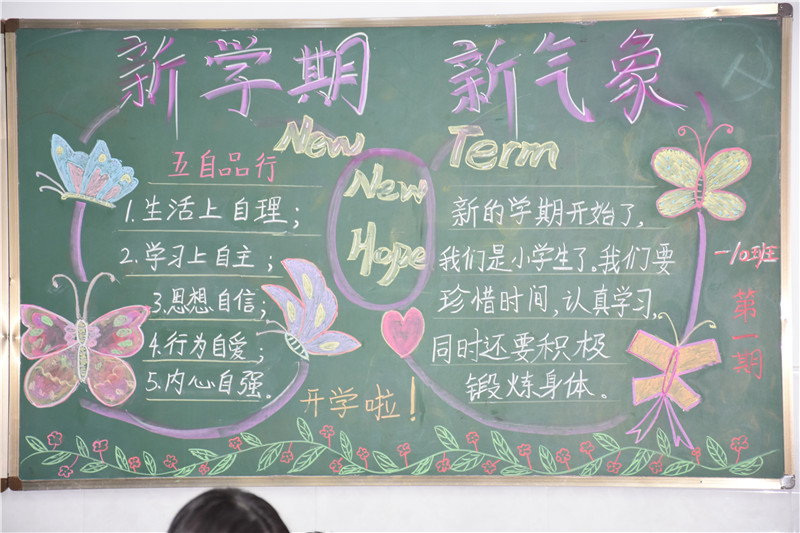 新学期 新气象
New Term
New
Hope
五自品行
1.生活上自理；
2.学习上自主；
3.思想自信；
4.行为自爱；
5.内心自强。
新的学期开始了，
我们是小学生了。我们要
珍惜时间，认真学习，
同时还要积极
锻炼身体。
开学啦！
一/02班
第一期